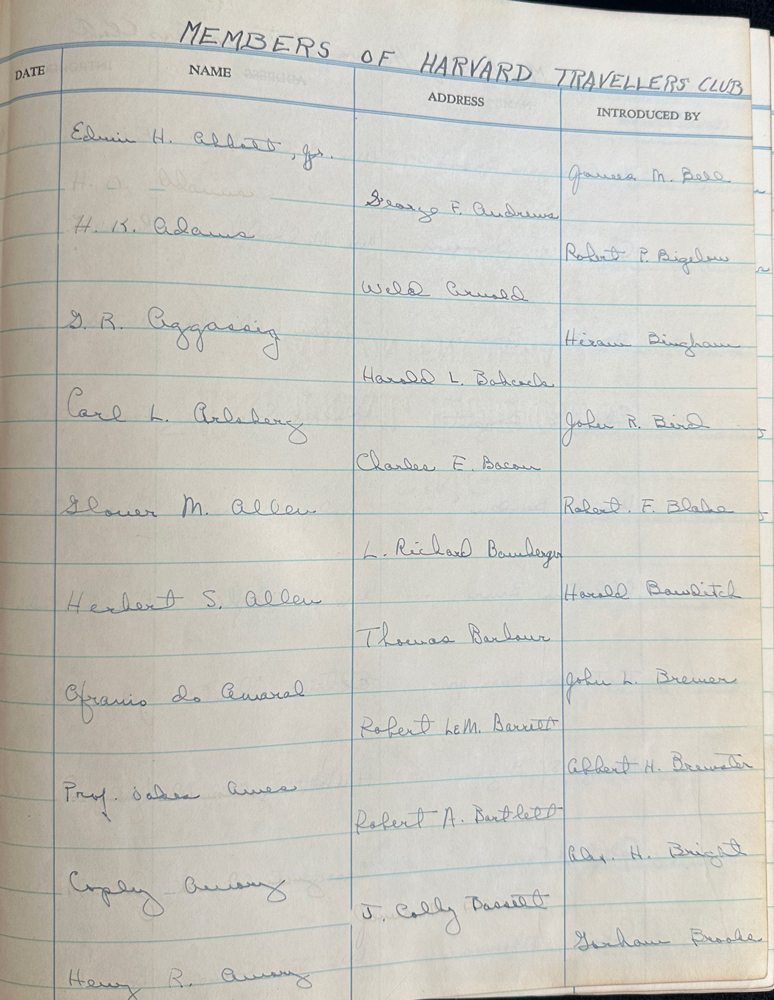 MEMBERS OF HARVARD TRAVELLERS CLUB
DATE NAME ADDRESS INTRODUCED BY
Edwin H. Abbott, Jr.
H. K. Adams
G. R. Aggassig
Carl L. Arlsberg
Glover M. Allen
Herbert S. Allen
Afranio do Amaral
Prof. Oakes Ames
Copley Amory
Henry R. Amory
George F. Andrews
Weld Arnold
Harold L. Babcock
Charles E. Bacon
L. Richard Bamberger
Thomas Barbour
Robert LeM. Barrett
Robert A. Bartlett
J. Colby Bassett
James M. Bell
Robert P. Bigelow
Hiram Bingham
John R. Bird
Robert. F. Blake
Harold Bowditch
John L. Brewer
Albert H. Brewster
Alex. H. Bright
Gorham Brooks